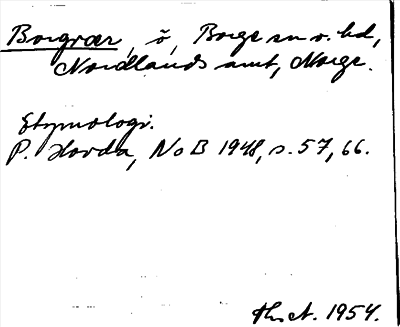 Borgvær, ö, Borge sn o. hd,
Nordlands amt, Norge.
Etymologi.
P. Hovda, NoB 1948, s. 57, 66.
1954.